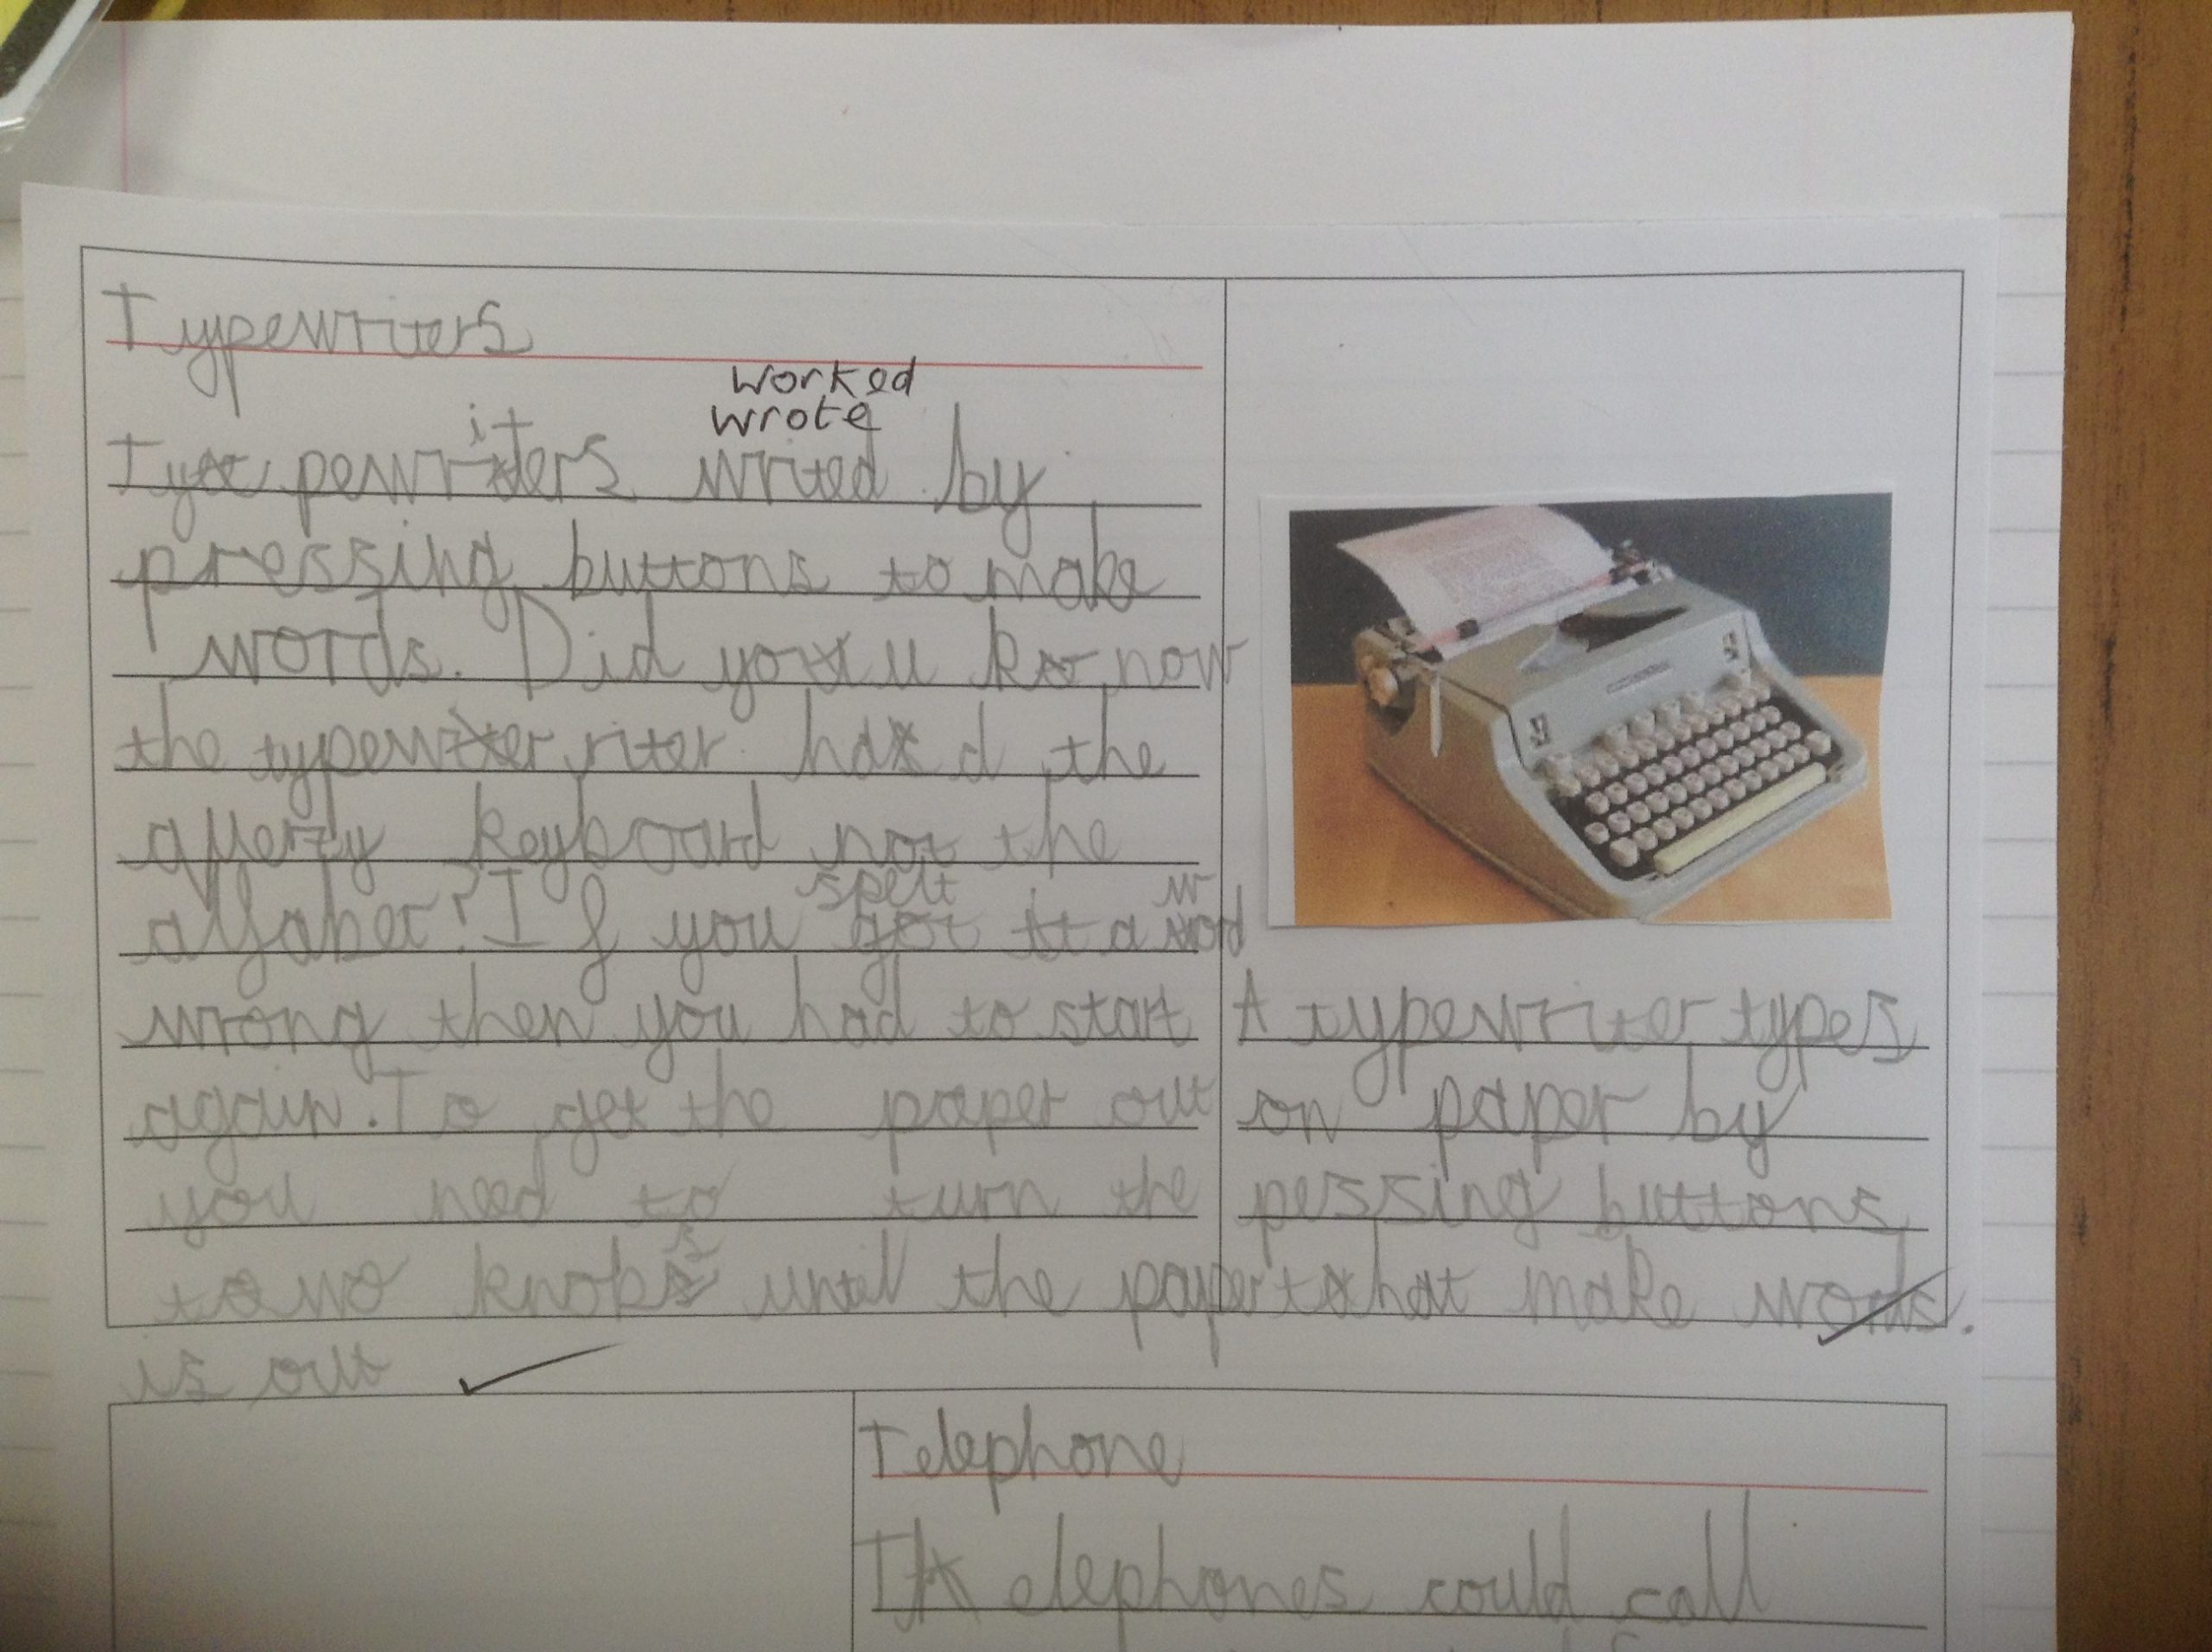 Typewriters
worked
wrote
Typewriters writed by
pressing buttons to make
words. Did you know
the typewriter had the
querty keyboard not the
alfabet? If you spelt a word
wrong then you had to start
again. To get the paper out
you need to turn the
two knobs until the paper
is out
A typewriter types
on paper by
pessing buttons
that make words.
Telephone
Telephones could call